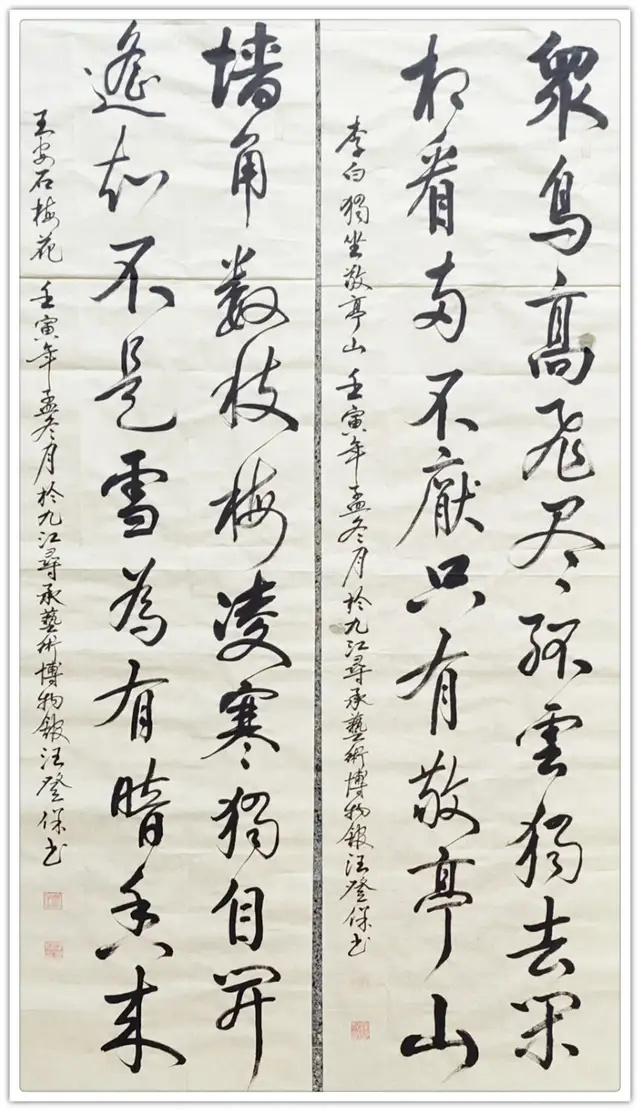 眾鳥高飛尽孤雲獨去閑
相看兩不厭只有敬亭山
李白獨坐敬亭山 壬寅年孟冬月於九江尋承藝術博物館汪登保书
墙角數枝梅凌寒獨自開
遙知不是雪為有暗香来
王安石梅花 壬寅年孟冬月於九江尋承藝術博物館汪登保书